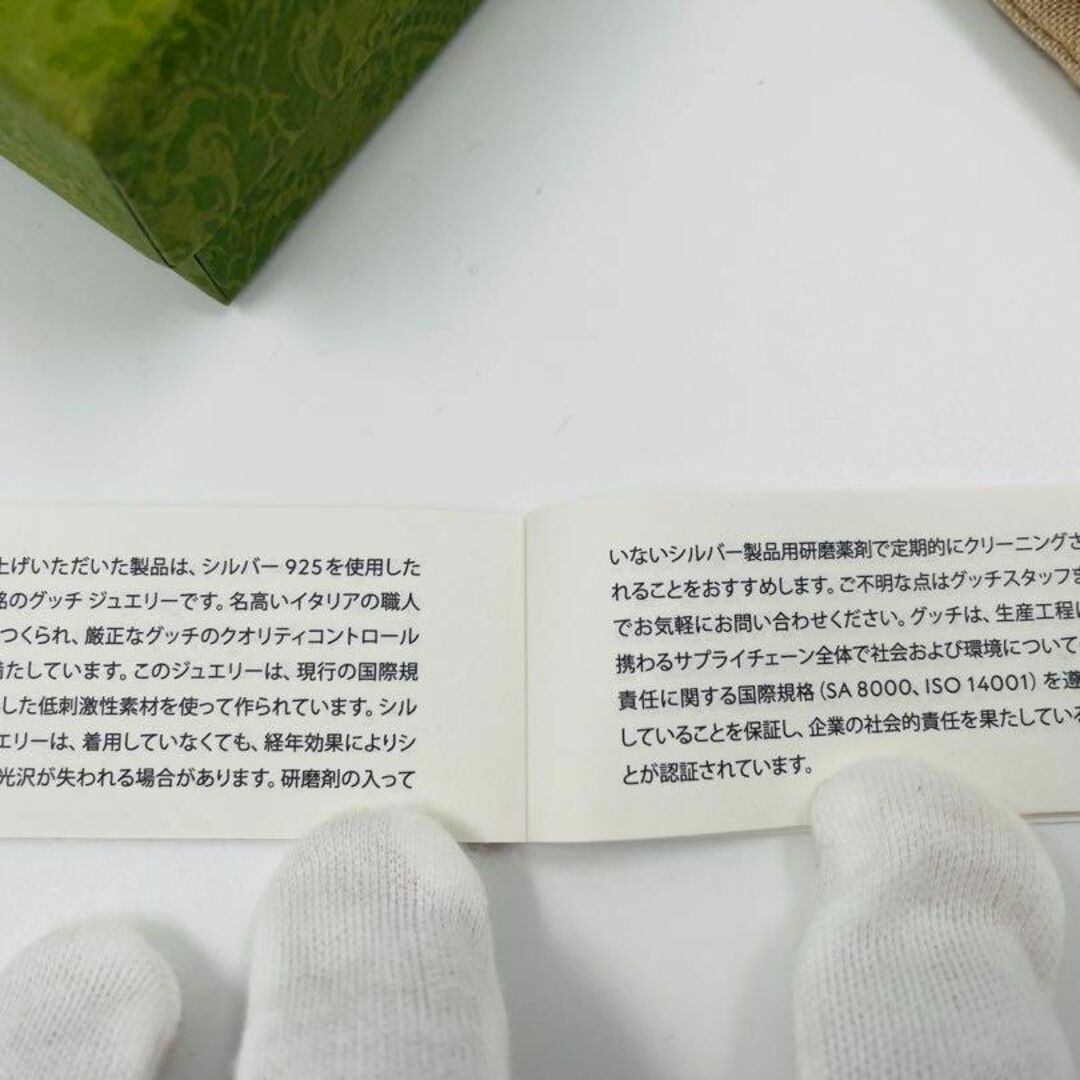 上げいただいた製品は、シルバー 925を使用した
銘のグッチ ジュエリーです。名高いイタリアの職人
つくられ、厳正なグッチのクオリティコントロール
満たしています。このジュエリーは、現行の国際規
した低刺激性素材を使って作られています。シル
エリーは、着用していなくても、経年効果によりシ
光沢が失われる場合があります。研磨剤の入って
いないシルバー製品用研磨薬剤で定期的にクリーニングさ
れることをおすすめします。ご不明な点はグッチスタッフま
でお気軽にお問い合わせください。グッチは、生産工程に
携わるサプライチェーン全体で社会および環境について
責任に関する国際規格（SA 8000、ISO 14001）を遵
していることを保証し、企業の社会的責任を果たしている
とが認証されています。